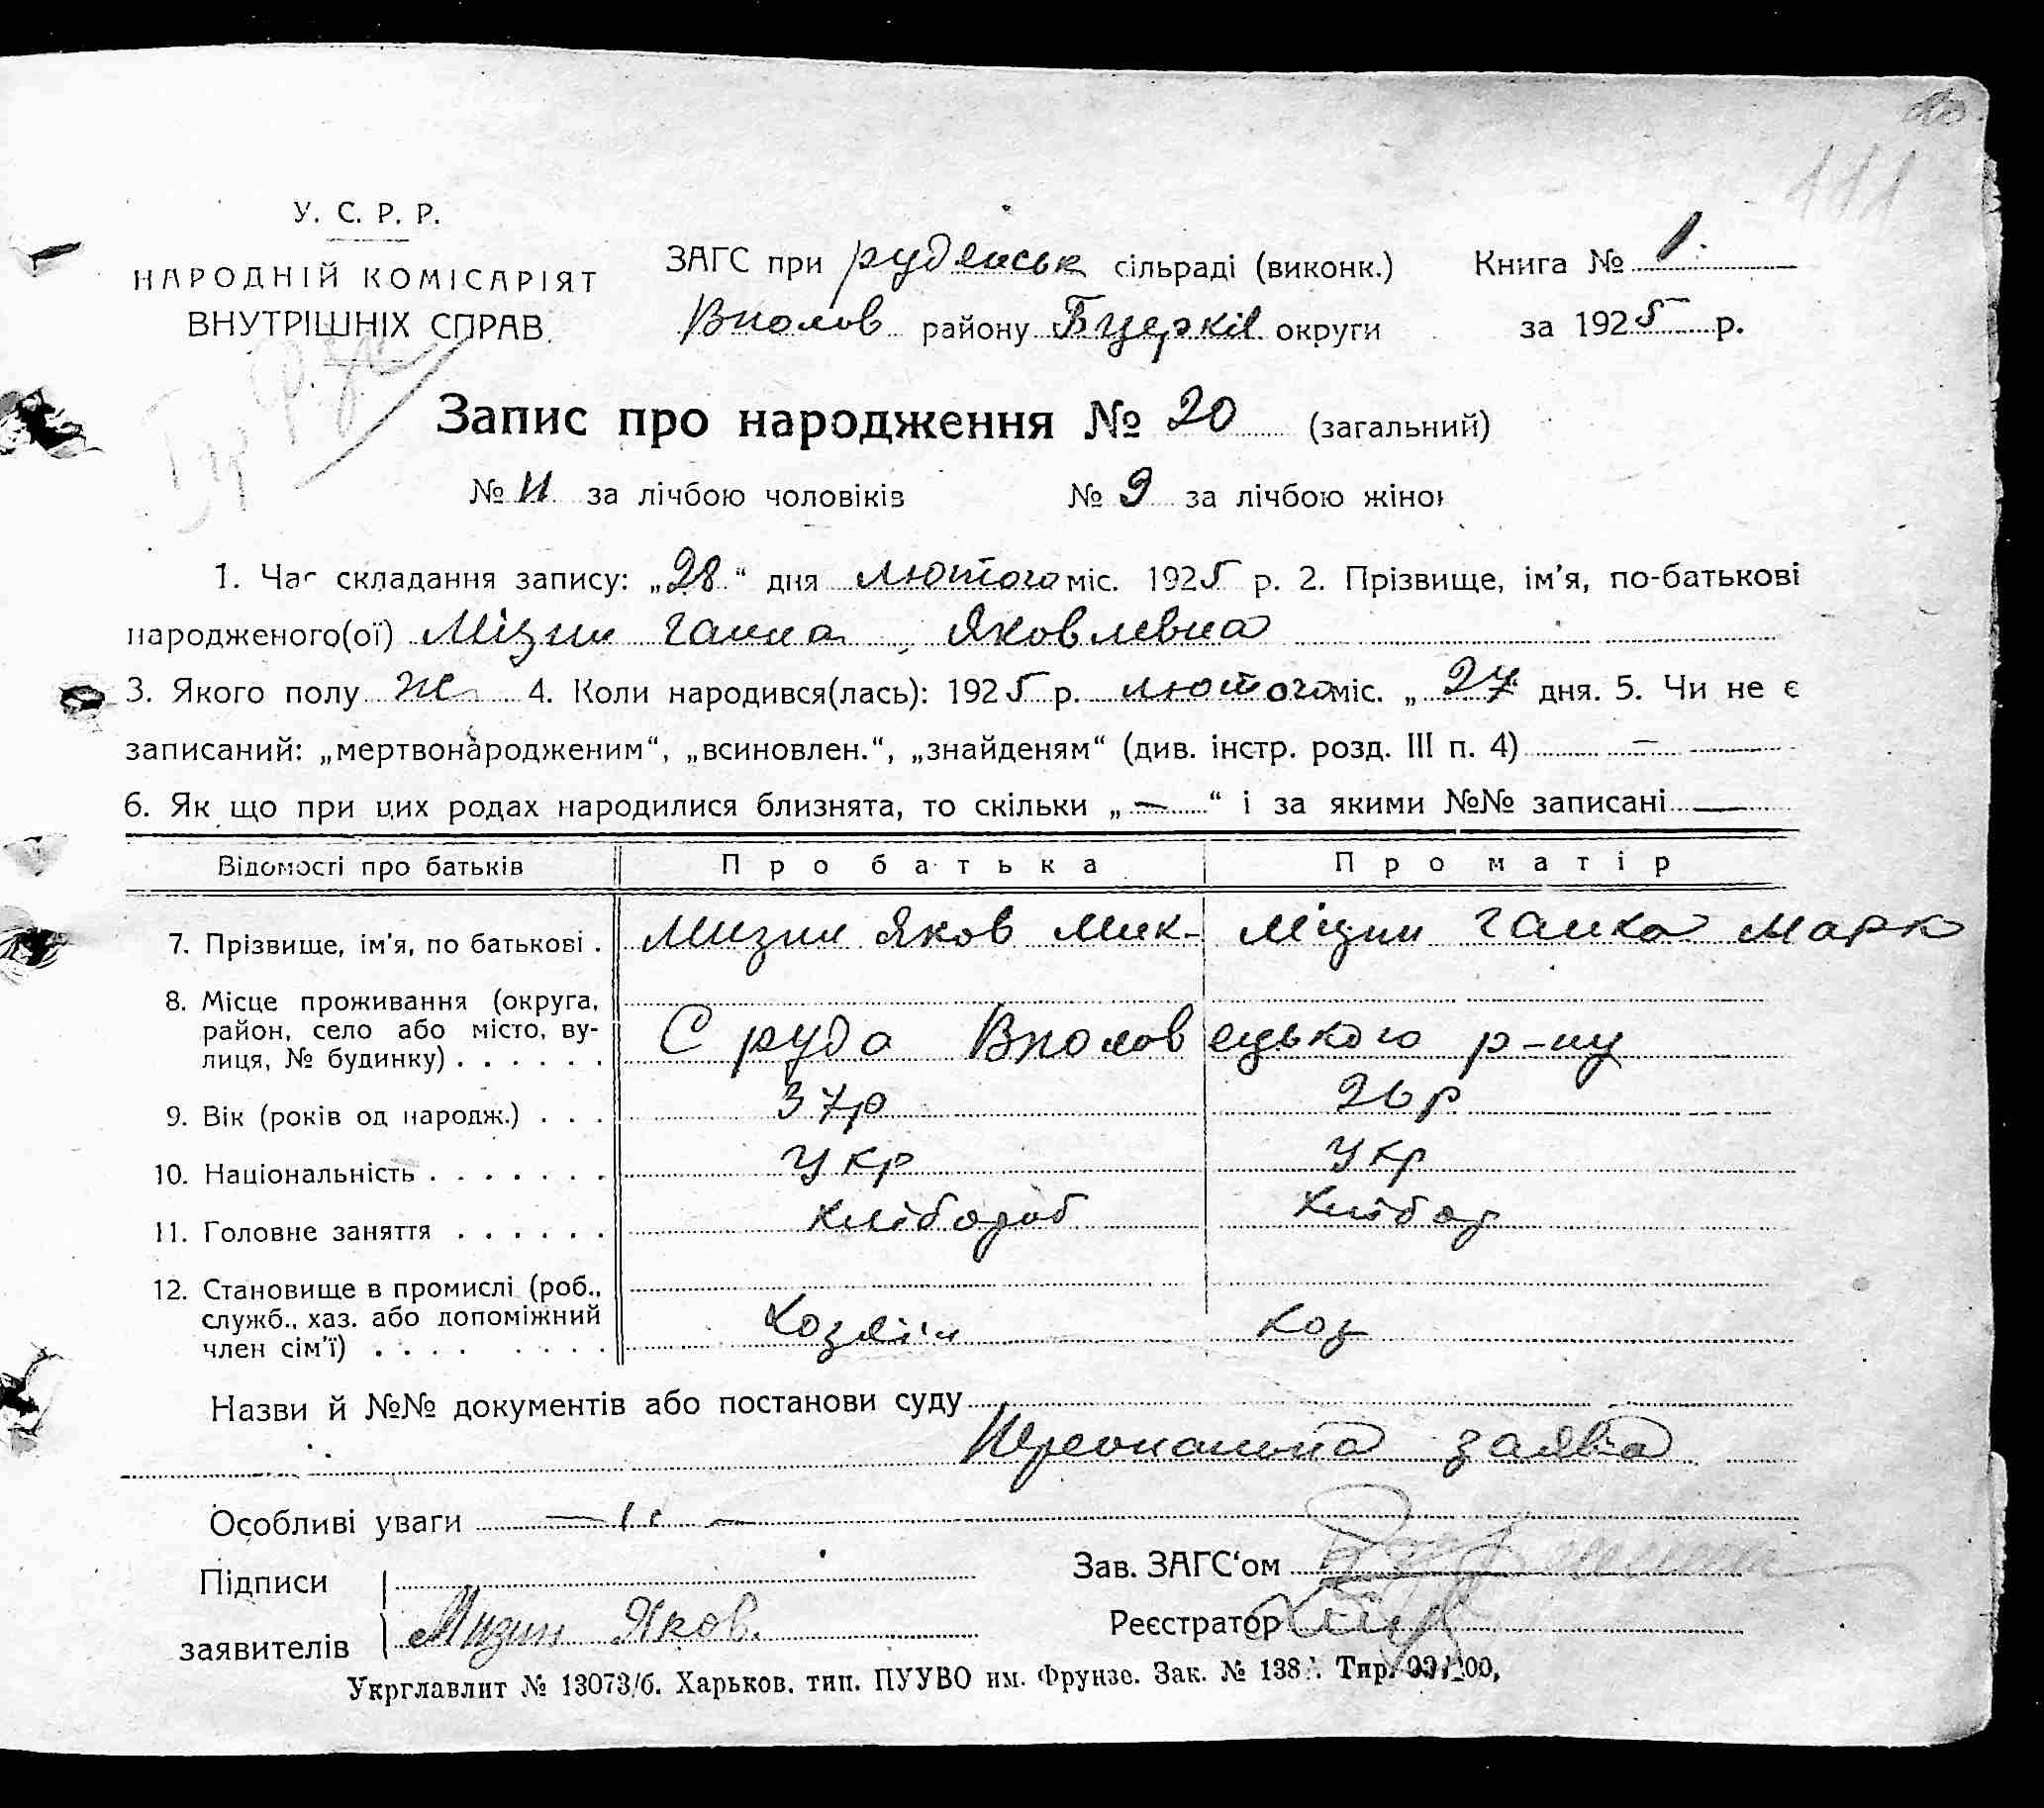 111
У. С. Р. Р.
НАРОДНІЙ КОМІСАРІЯТ
ВНУТРІШНІХ СПРАВ.
ЗАГС при рудянськ сільраді (виконк.)
Вполов району Бцерків округи
Книга № 1
за 1925 р.
Запис про народження № 20 (загальний)
№ 11 за лічбою чоловіків № 9 за лічбою жінок
1. Час складання запису: „28“ дня лютого міс. 1925 р. 2. Прізвище, ім'я, по-батькові
народженого(ої) Мізин ганна Яковлевна
3. Якого полу ж 4. Коли народився(лась): 1925 р. лютого міс. „27 дня. 5. Чи не є
записаний: „мертвонародженим“, „всиновлен.“, „знайденям“ (див. інстр. розд. III п. 4) —
6. Як що при цих родах народилися близнята, то скільки „—“ і за якими №№ записані —
Відомості про батьків Про батька Про матір
7. Прізвище, ім'я, по батькові . Мизин Яков Мик- Мізин ганна Марк
8. Місце проживання (округа,
район, село або місто, ву-
лиця, № будинку) . . . . . . С руда Вполовецького р-ну
9. Вік (років од народж.) . . . 37р 26р
10. Національність . . . . . . . Укр Укр
11. Головне заняття . . . . . . хлібороб хлібор
12. Становище в промислі (роб.,
служб., хаз. або допоміжний
член сім'ї) . . . . . . . . Хозяін Хоз
Назви й №№ документів або постанови суду
Персональна заява
Особливі уваги — 11 —
Підписи
заявителів Мизин Яков.
Зав. ЗАГС‘ом
Реєстратор
Укрглавлит № 13073/б. Харьков. тип. ПУУВО им. Фрунзе. Зак. № 138 Тир.